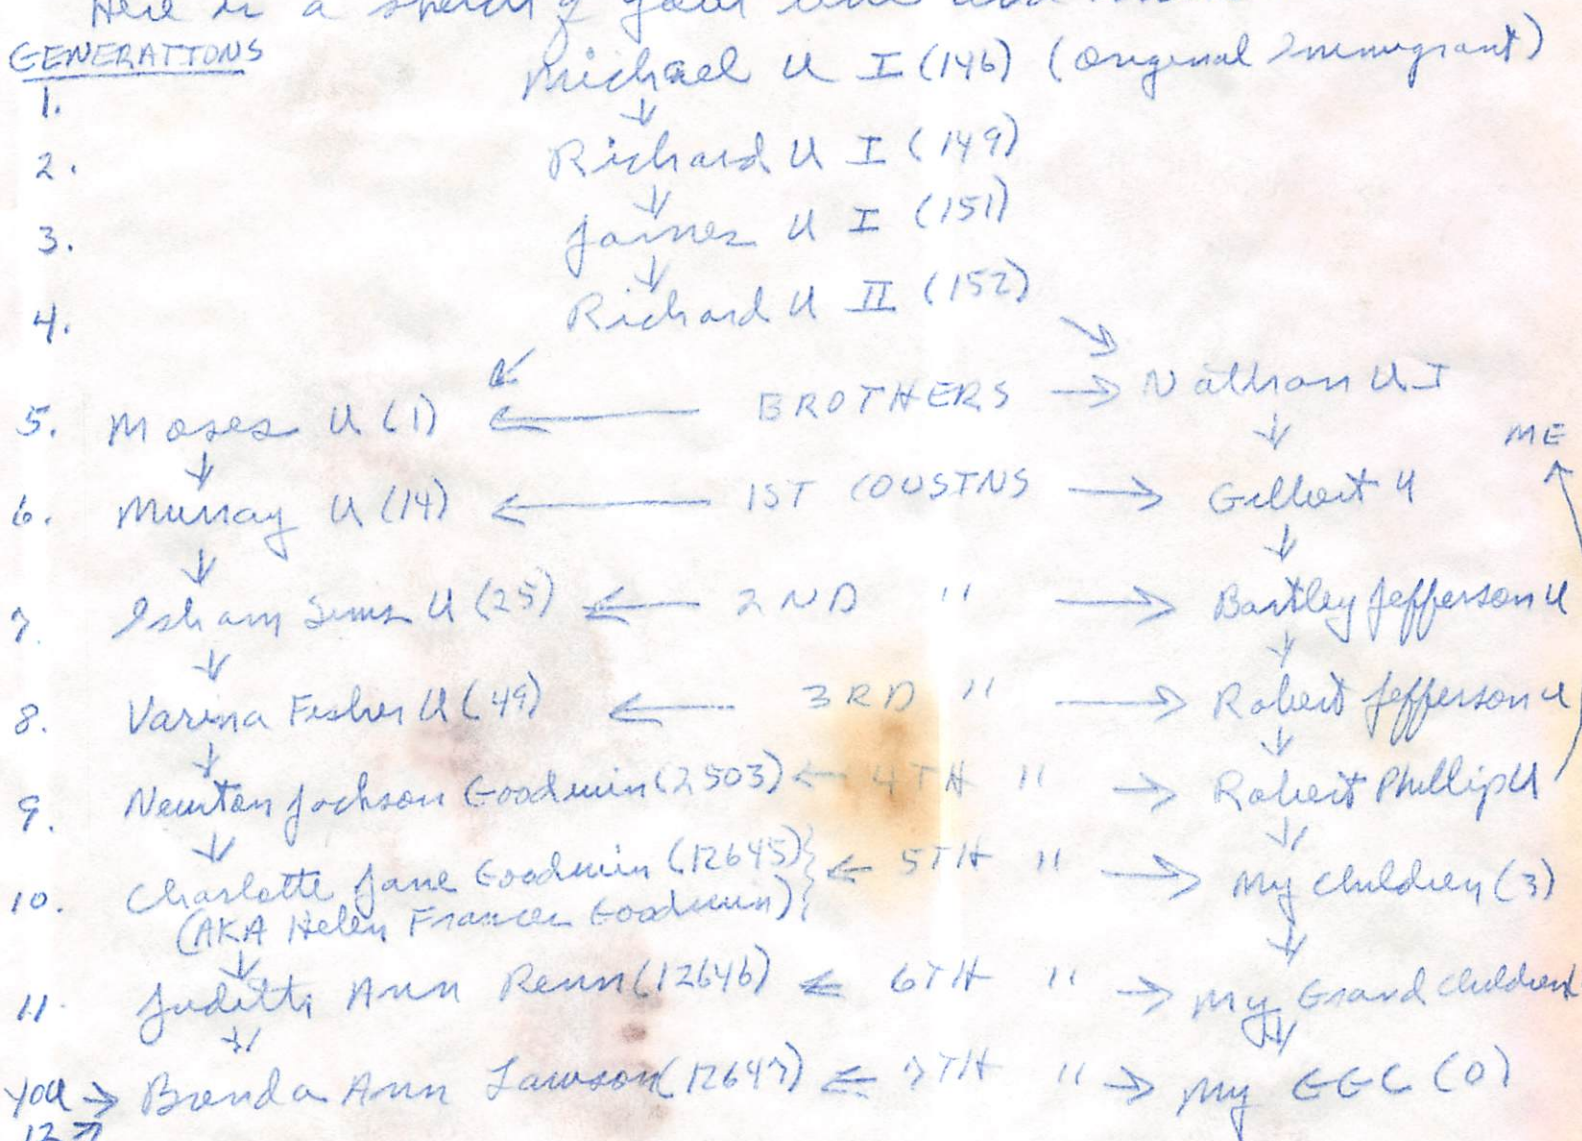 Here is a sketch of your line
GENERATIONS
1. Michael U I (146) (Original Immigrant)
2. Richard U I (149)
3. James U I (151)
4. Richard U II (152)
5. Moses U (1) ← BROTHERS → Nathan U I
ME
6. Murray U (14) ← 1ST COUSINS → Gilbert U
7. Isham Sims U (25) ← 2ND " → Bartley Jefferson U
8. Varina Fisher U (49) ← 3RD " → Robert Jefferson U
9. Newton Jackson Goodwin (2503) ← 4TH " → Robert Phillip U
10. Charlotte Jane Goodwin (12645) ← 5TH " → My children (3)
(AKA Helen Frances Goodwin)
11. Judith Ann Renn (12646) ← 6TH " → My Grandchildren
YOU → Brenda Ann Lawson (12647) ← 7TH " → My GGC (0)
12